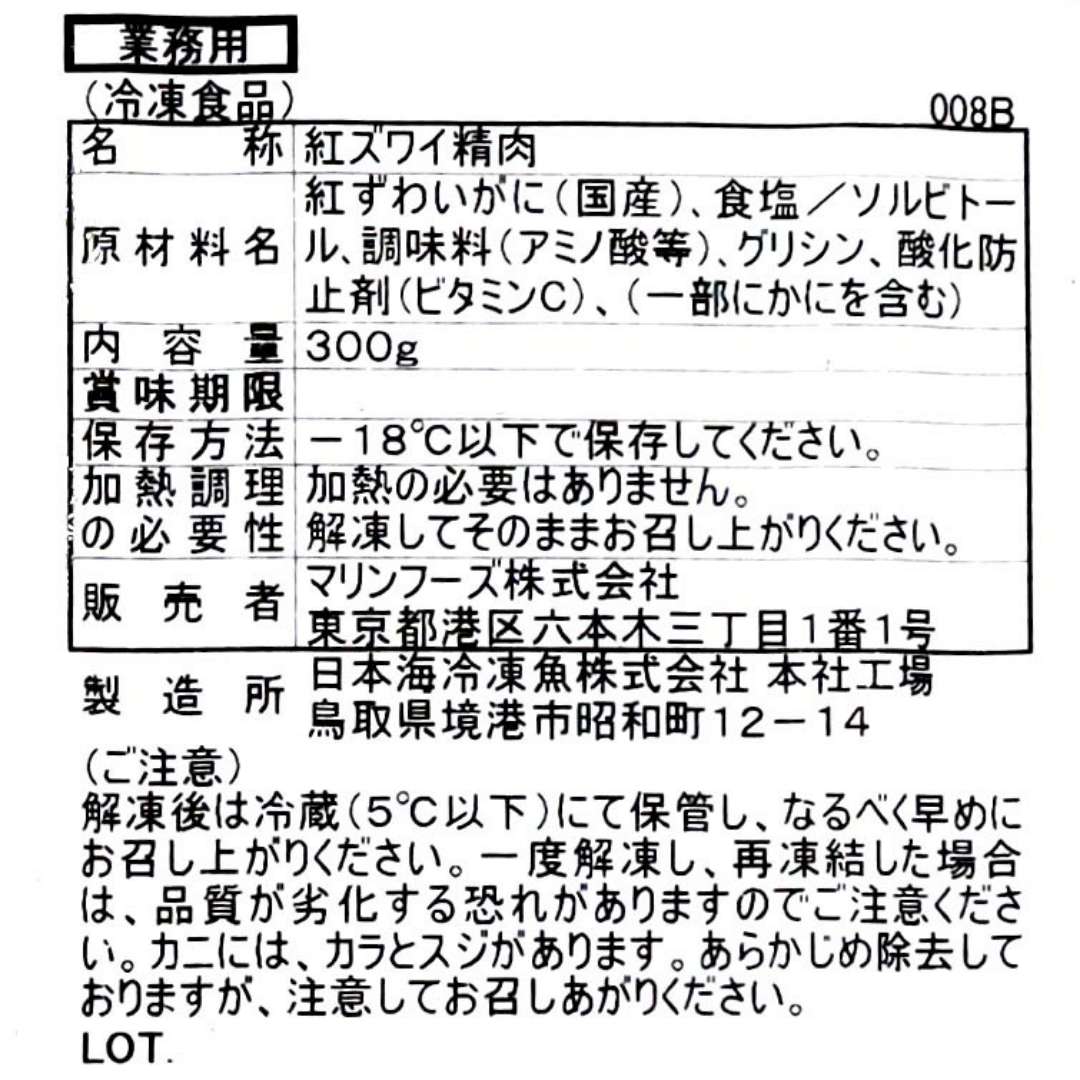 業務用
(冷凍食品)
008B
名称 紅ズワイ精肉
原材料名 紅ずわいがに(国産)、食塩/ソルビトー
ル、調味料(アミノ酸等)、グリシン、酸化防
止剤(ビタミンC)、(一部にかにを含む)
内容量 300g
賞味期限
保存方法 -18℃以下で保存してください。
加熱調理 加熱の必要はありません。
の必要性 解凍してそのままお召し上がりください。
販売者 マリンフーズ株式会社
東京都港区六本木三丁目1番1号
製造所 日本海冷凍魚株式会社 本社工場
鳥取県境港市昭和町12-14
(ご注意)
解凍後は冷蔵(5℃以下)にて保管し、なるべく早めに
お召し上がりください。一度解凍し、再凍結した場合
は、品質が劣化する恐れがありますのでご注意くださ
い。カニには、カラとスジがあります。あらかじめ除去して
おりますが、注意してお召しあがりください。
LOT.